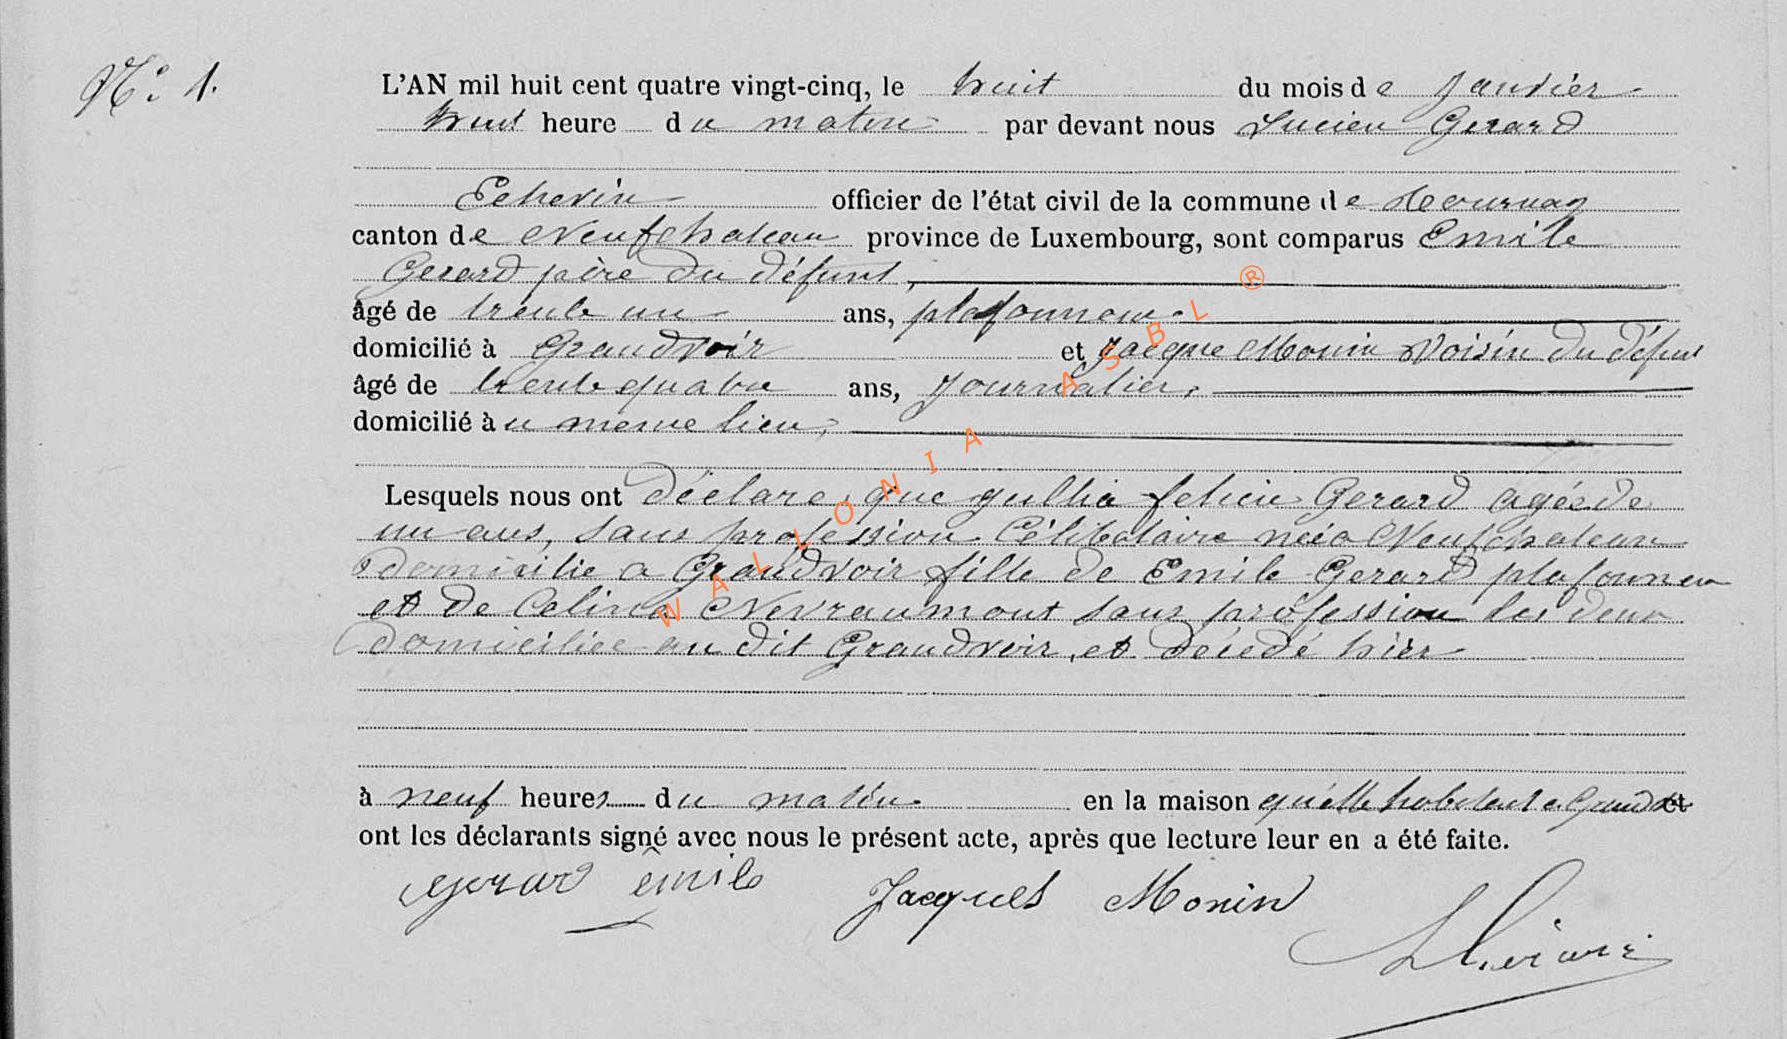 N° 1.
L'AN mil huit cent quatre vingt-cinq, le huit du mois de Janvier
huit heure du matin par devant nous Lucien Gerard
Echevin officier de l'état civil de la commune de Tournay
canton de Neufchateau province de Luxembourg, sont comparus Emile
Gerard père du défunt,
âgé de trente un ans, plafonneur
domicilié à Grandvoir et Jacque Monin voisin du défunt
âgé de trente quatre ans, Journalier,
domicilié au meme lieu,
Lesquels nous ont déclaré que felicie Gerard agée de
un ans, sans profession Célibataire née a Neufchateau
domicilie a Grandvoir fille de Emile Gerard plafonneur
et de Celina Nevraumont sans profession les deux
domiciliée au dit Grandvoir, et décedé hier
à neuf heures du matin en la maison qu'elle habitait a et
ont les déclarants signé avec nous le présent acte, après que lecture leur en a été faite.
Gerard Emile Jacques Monin
WALLONIA ASBL ®